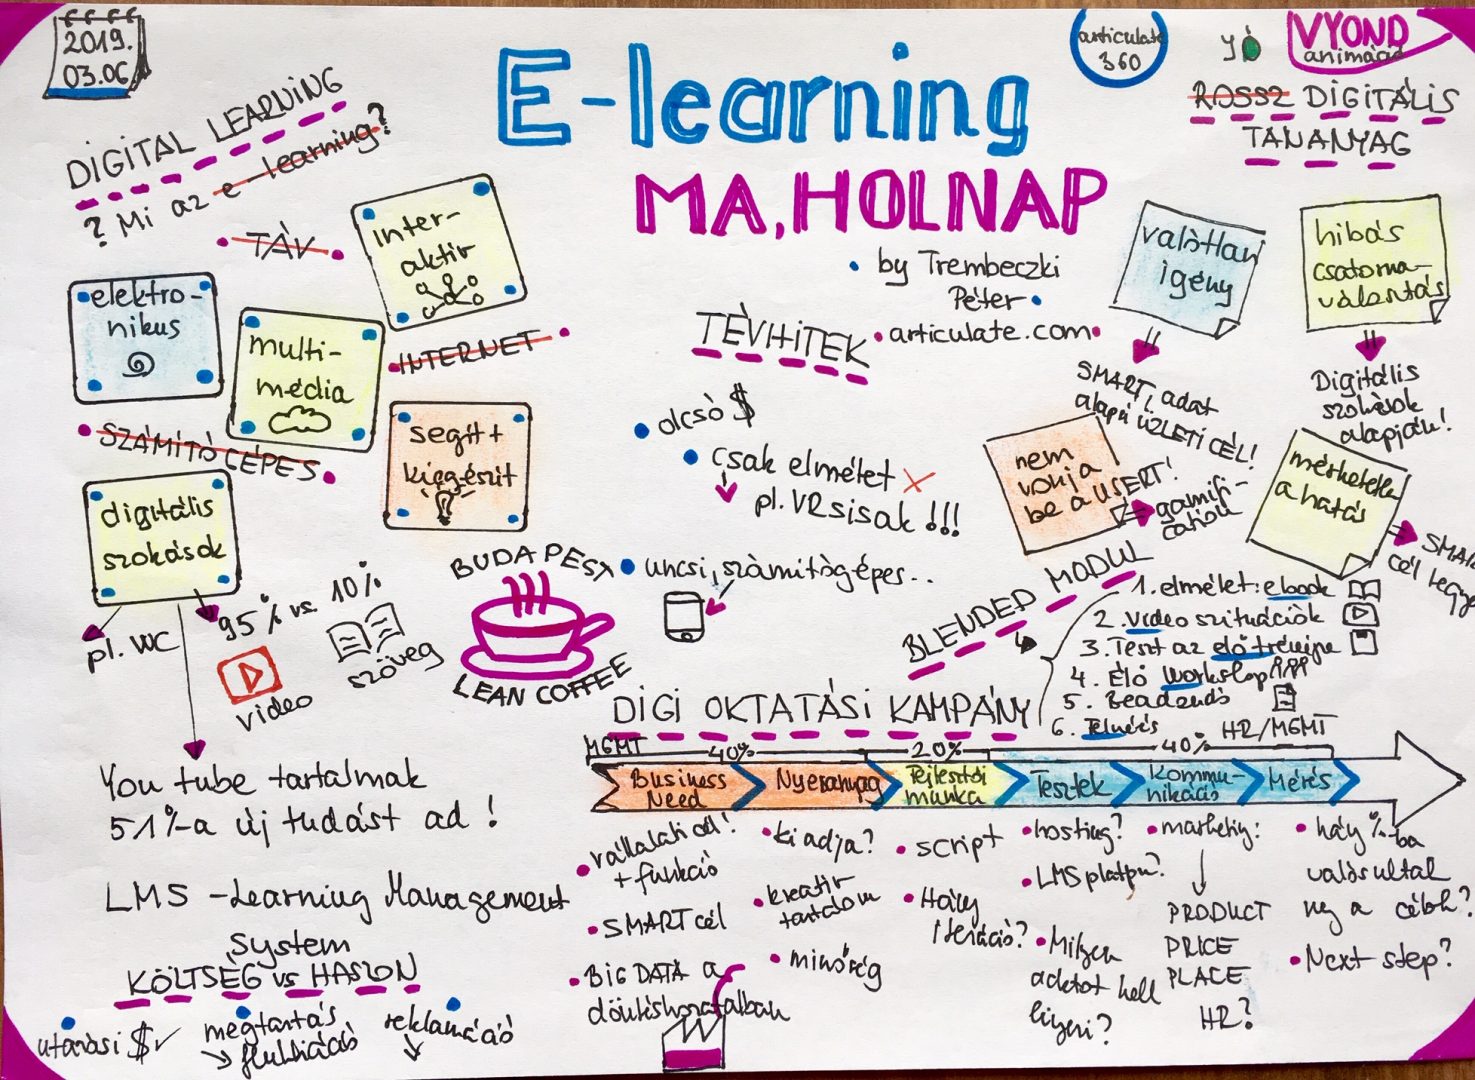 2019.
03.06
E-learning
MA, HOLNAP
• by Trembeczki
Péter •
• articulate.com •
articulate
360
YÓ
VYOND
animáció
ROSSZ DIGITÁLIS
TANANYAG
DIGITAL LEARNING
? Mi az e-learning?
• TÁV •
Inter-
aktív
elektro-
nikus
multi-
média
• INTERNET •
• SZÁMÍTÓGÉPES •
segít +
kiegészít
digitális
szokások
pl. WC
95% vs. 10%
video
szöveg
You tube tartalmak
51%-a új tudást ad!
LMS - Learning Management
System
KÖLTSÉG vs HASZON
utazási $ ✓
megtartás
→ fluktuáció
reklamáció
BUDAPEST
LEAN COFFEE
TÉVHITEK
• olcsó $
• csak elmélet X
pl. VR sisak!!!
• uncsi, számítógépes..
valótlan
igény
SMART, adat
alapú ÜZLETI CÉL!
hibás
csatorna-
választás
Digitális
szokások
alapján!
nem
vonja
be a USERT!
gamifi-
cation
mérhetetlen
a hatás
SMART
cél legyen
BLENDED MODUL
1. elmélet: ebook
2. Video szituációk
3. Teszt az élő tréningre
4. Élő workshop
5. Beadandó
6. Felmérés
HR/MGMT
DIGI OKTATÁSI KAMPÁNY
MGMT
40%
20%
40%
Business
Need
Nyersanyag
Fejlesztői
munka
Tesztek
Kommu-
nikáció
Mérés
• vállalati cél!
+ funkció
• SMART cél
• BIG DATA a
döntéshozatalban
• ki adja?
• kreatív
tartalom
• minőség
• script
• Hány
iteráció?
• hosting?
• LMS platform?
• Milyen
adatot kell
kinyerni?
• marketing:
PRODUCT
PRICE
PLACE
HR?
• hány %-ba
valósultak
meg a célok?
• Next step?